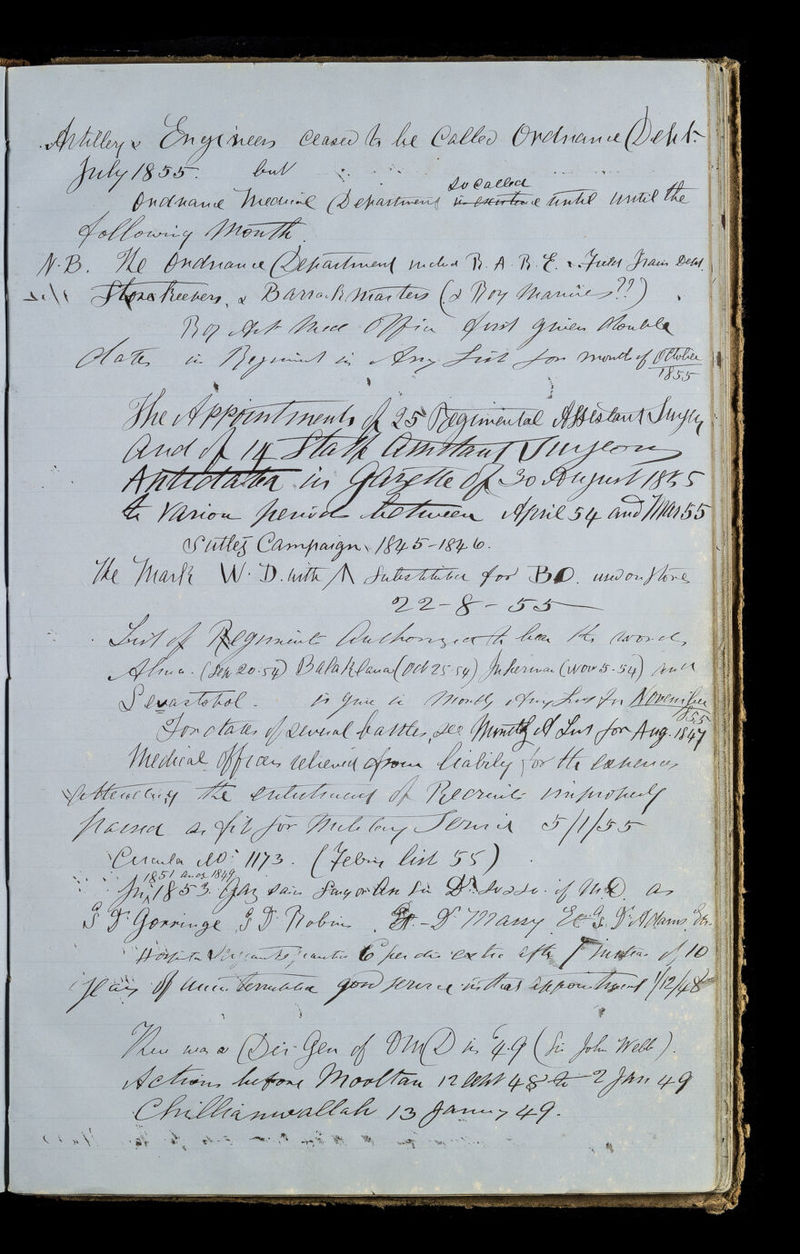 Artillery & Engineers ceased to be called Ordnance Dept.
July 1855. but
so called
Ordnance Medical Department in existence until until the
following Month
N.B. The Ordnance Department includ R. A. R. E. & Field Train Dept.
Storekeepers, & Barrack masters (& Roy Marines??)
Roy Art Med Officer first given double
dates in Regiment in Army List for month of October
1855
The Appointments of 25 Regimental Assistant Surgns
and of 14 Staff Assistant Surgeons
Antidated in Gazette of 30 August 1855
to various periods between April 54 and Mar 55
Sutlej Campaign 1845-1846.
The Mark W. D. with /\ substituted for B.O. used on Stores
22-8-55
List of Regiments Authorized to bear the words
Alma. (Sep 20. 54) Balaklava (Oct 25 54) Inkerman (Nov 5. 54) and
Sevastopol. is given in Monthly Army List for November
1855
For dates of several battles, see Monthly A List for Aug. 1847
Medical Officers relieved from liability for the expenses
attending the enlistment of Recruits improperly
passed as fit for Military Service 5/1/55
Circular No: 1173. (Febry list 55)
1851 and 1849
In 1853 Gaz says Surgeon Dr. so & so of MD. as
G Dr Gorringe, G Dr Robins - Dr Massy Dr Adams
Hospital Sergeants 6 per diem extra after 7 instead of 10
years of uninterrupted good service in that appointment 1/12/48
There was a Dir-Gen of OMD in 49 (Sir John Webb).
Actions before Mooltan 12 Sept 48 to 2 Jan 49
Chillianwallah 13 January 49.